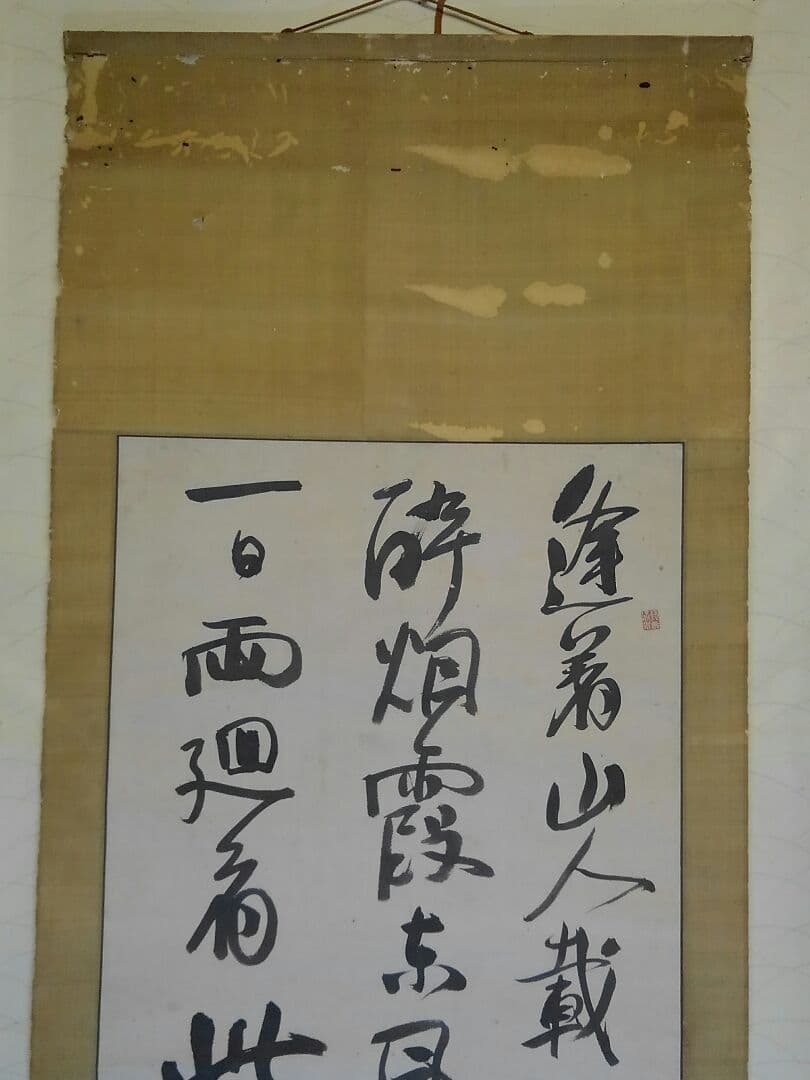 逢着山人載
酔烟霞東
一日両廻看